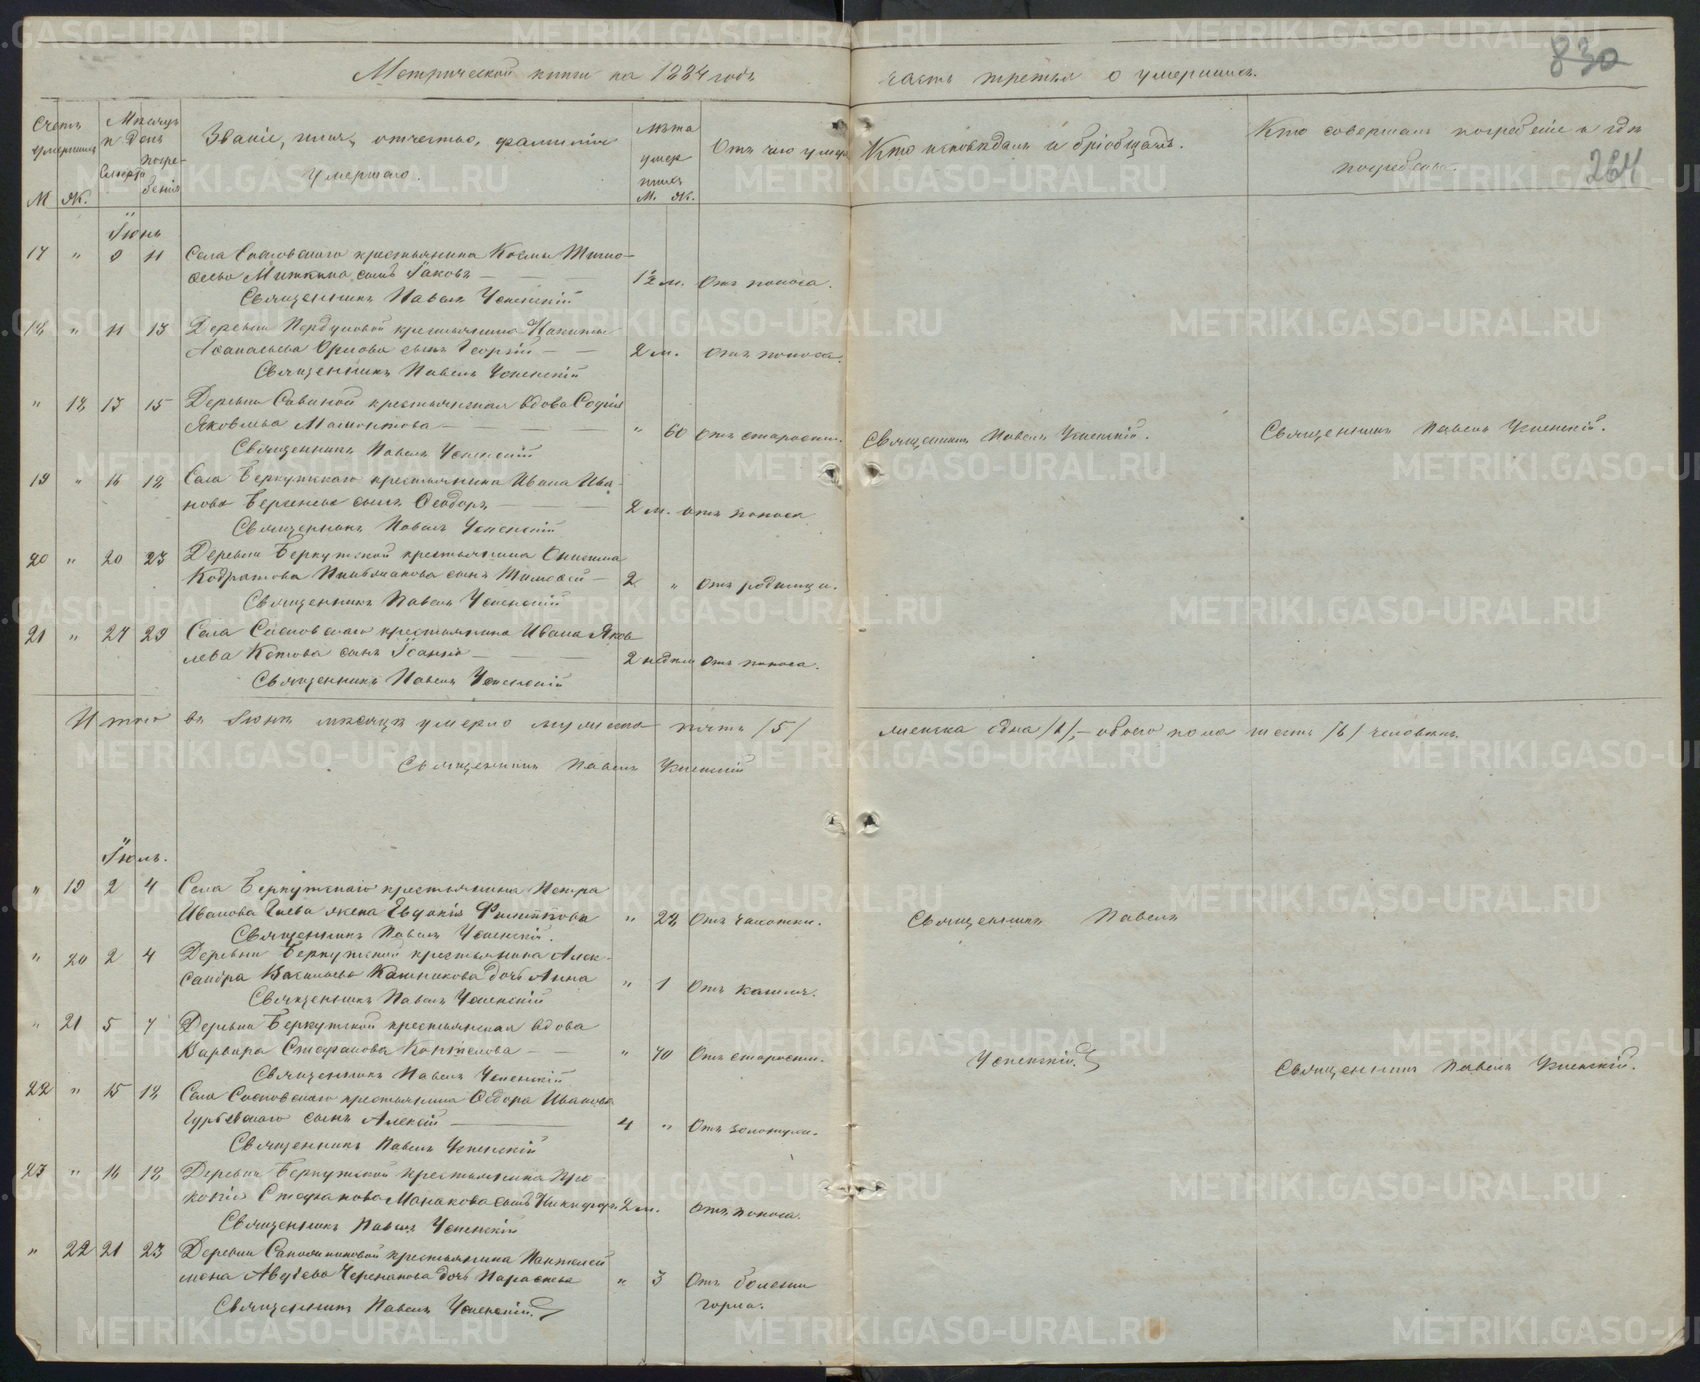 830
Метрической книги на 1884 годъ
часть третья о умершихъ.
Счетъ умершихъ
М. Ж.
Мѣсяцъ и день
Смерти
погребенія
Званіе, имя, отчество, фамилія
умершаго.
Лѣта умершихъ
М. Ж.
Отъ чего умеръ
Кто исповѣдалъ и пріобщалъ.
Кто совершалъ погребеніе и гдѣ
погребены.
264
Іюнь
17 " 9 11 Села Сосновскаго крестьянина Космы Тимо-
сынъ Іаковъ — 1½ м. Отъ поноса.
Священникъ Павелъ Успенскій
18 " 11 13 Деревни крестьянина Никиты
Аѳанасьева Орлова сынъ Георгій — 2 м. Отъ поноса.
Священникъ Павелъ Успенскій
" 18 13 15 Деревни Савиной крестьянская вдова Софія
Яковлева Мамонтова — " 60 Отъ старости. Священникъ Павелъ Успенскій. Священникъ Павелъ Успенскій.
Священникъ Павелъ Успенскій
19 " 16 18 Села Беркутскаго крестьянина Ивана Ива-
нова сынъ Ѳеодоръ — 2 м. отъ поноса
Священникъ Павелъ Успенскій
20 " 20 23 Деревни Беркутской крестьянина
Кодратова сынъ Тимоѳей — 2 " Отъ родимца.
Священникъ Павелъ Успенскій
21 " 27 29 Села Сосновскаго крестьянина Ивана Яков-
лева Котова сынъ Іоаннъ — 2 недѣли Отъ поноса.
Священникъ Павелъ Успенскій
Итого въ Іюнѣ мѣсяцѣ умерло мужеска пять /5/ женска одна /1/, — обоего пола шесть /6/ человѣкъ.
Священникъ Павелъ Успенскій
Іюль.
" 19 2 4 Села Беркутскаго крестьянина Петра
Иванова жена Евдокія Филиппова " 28 Отъ чахотки. Священникъ Павелъ
Священникъ Павелъ Успенскій.
" 20 2 4 Деревни Беркутской крестьянина Алек-
сандра Васильева Калинникова дочь Анна " 1 Отъ кашля.
Священникъ Павелъ Успенскій
" 21 5 7 Деревни Беркутской крестьянская вдова
Варвара Стефанова — " 70 Отъ старости. Успенскій. Священникъ Павелъ Успенскій.
Священникъ Павелъ Успенскій
22 " 15 18 Села Сосновскаго крестьянина Ѳедора Иванова
сынъ Алексій — 4 " Отъ золотухи.
Священникъ Павелъ Успенскій
23 " 16 18 Деревни Беркутской крестьянина Про-
копія Стефанова Манакова сынъ Никифоръ. 2 м. Отъ поноса.
Священникъ Павелъ Успенскій
" 22 21 23 Деревни крестьянина Пантелей-
мона Авдѣева Черепанова дочь Параскева " 3 Отъ болезни
горла.
Священникъ Павелъ Успенскій.
METRIKI.GASO-URAL.RU